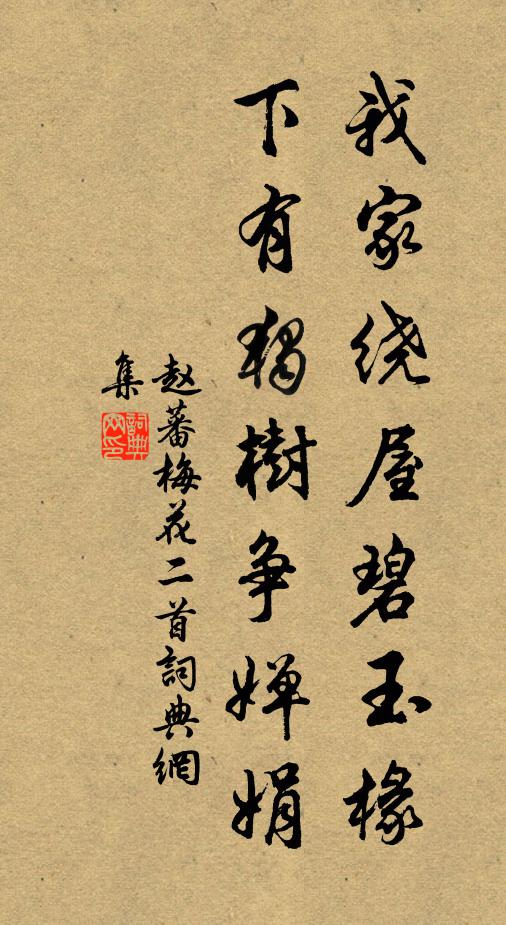 我家绕屋碧玉椽
下有獨樹争婵娟
赵蕃梅花二首詞典網
集
詞典網印